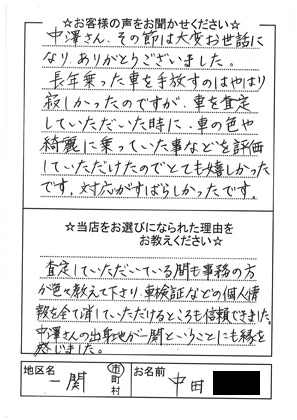 ☆お客様の声をお聞かせください☆
中澤さん、その節は大変お世話に
なり、ありがとうございました。
長年乗った車を手放すのはやはり
寂しかったのですが、車を査定
していただいた時に、車の色や
綺麗に乗っていた事などを評価
していただけたのでとても嬉しかった
です。対応がすばらしかったです。
☆当店をお選びになられた理由を
お教えください☆
査定していただいている間も事務の方
が色々教えて下さり、車検証などの個人情
報を全て消していただけるところも信頼できました。
中澤さんの出身地が一関ということにも縁を
感じました。
地区名 一関 市町村 お名前 中田